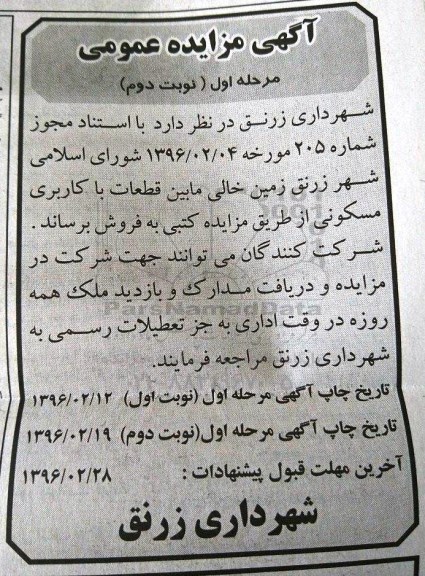 آگهی مزایده عمومی
مرحله اول ( نوبت دوم)
شهرداری زرنق در نظر دارد با استناد مجوز
شماره ۲۰۵ مورخه ۱۳۹۶/۰۲/۰۴ شورای اسلامی
شهر زرنق زمین خالی مابین قطعات با کاربری
مسکونی از طریق مزایده کتبی به فروش برساند .
شرکت کنندگان می توانند جهت شرکت در
مزایده و دریافت مدارک و بازدید ملک همه
ParsNamadData
روزه در وقت اداری به جز تعطیلات رسمی به
شهرداری زرنق مراجعه فرمایند.
تاریخ چاپ آگهی مرحله اول (نوبت اول) ۱۳۹۶/۰۲/۱۲
تاریخ چاپ آگهی مرحله اول(نوبت دوم) ۱۳۹۶/۰۲/۱۹
آخرین مهلت قبول پیشنهادات : ۱۳۹۶/۰۲/۲۸
شهرداری زرنق